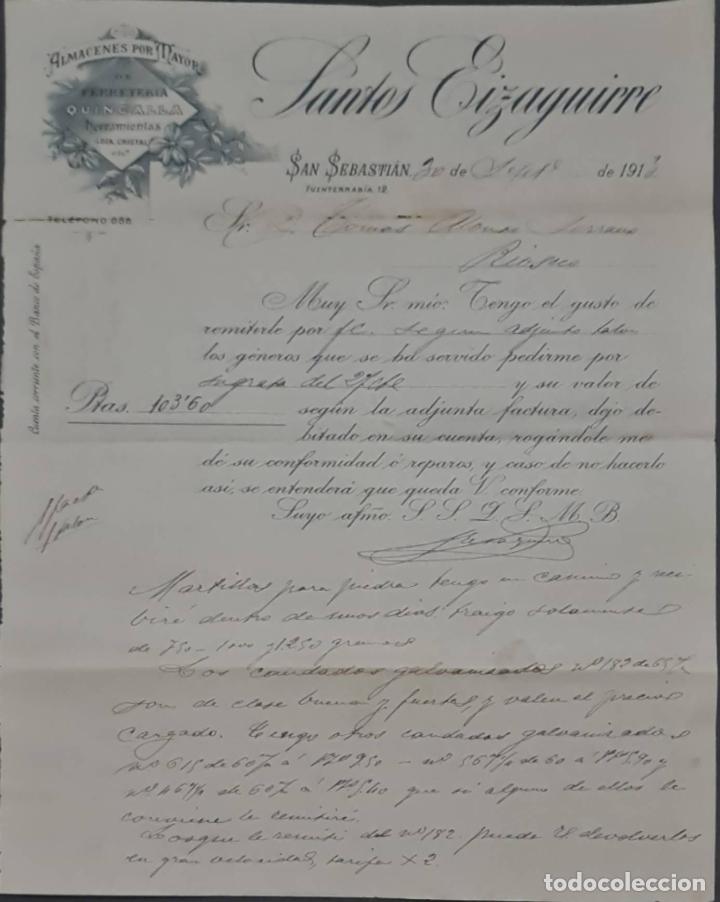 ALMACENES POR MAYOR
DE
FERRETERIA
QUINCALLA
Herramientas
LOZA, CRISTAL
TELÉFONO
Santos Eizaguirre
SAN SEBASTIÁN, 30 de Sepbre de 1913
FUENTERRABÍA, 12.
Cuenta corriente con el Banco de España
Sr. D. Tomas Alonso Serrano
Rioseco
Muy Sr. mio: Tengo el gusto de
remitirle por f.c. segun adjunto talon
los géneros que se ha servido pedirme por
su grata del 27 y su valor de
Ptas. 103'60
según la adjunta factura, dejo de-
bitado en su cuenta, rogándole me
dé su conformidad ó reparos, y caso de no hacerlo
asi, se entenderá que queda V. conforme.
Suyo afmo. S. S. Q. S. M. B.
Martillos para piedra tengo en camino y reci-
biré dentro de unos dias. traigo solamente
de 750 - 1000 y 1250 gramos
Los candados galvanizados nº 182 de 65 %
son de clase buena y fuertes, y valen el precio
cargado. Tengo otros candados galvanizados
nº 615 de 60 % á 2.50 - nº 567 % de 60 á 5.90 y
nº 467 % de 60 % á 5.40 que si alguno de ellos le
conviene le remitiré.
Los que le remiti del nº 182 puede V. devolverlos
en gran velocidad, tarifa X 2.
todocoleccion.net